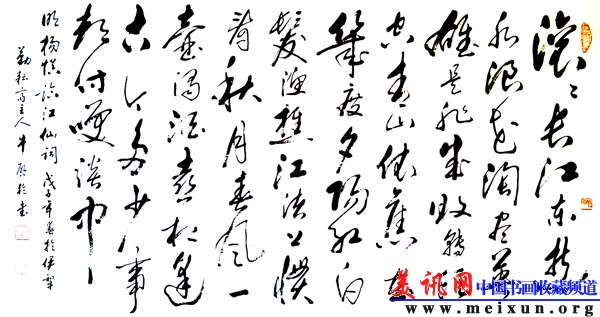 滚滚长江东逝
水浪花淘尽英
雄是非成败转头
空青山依旧在
幾度夕阳红白
髮渔樵江渚上惯
看秋月春风一
壶浊酒喜相逢
古今多少事
都付笑谈中
明杨慎临江仙词 戊子年 于伊犁
勤耘斋主人 牛 书
美讯网 中国书画收藏频道
www.meixun.org